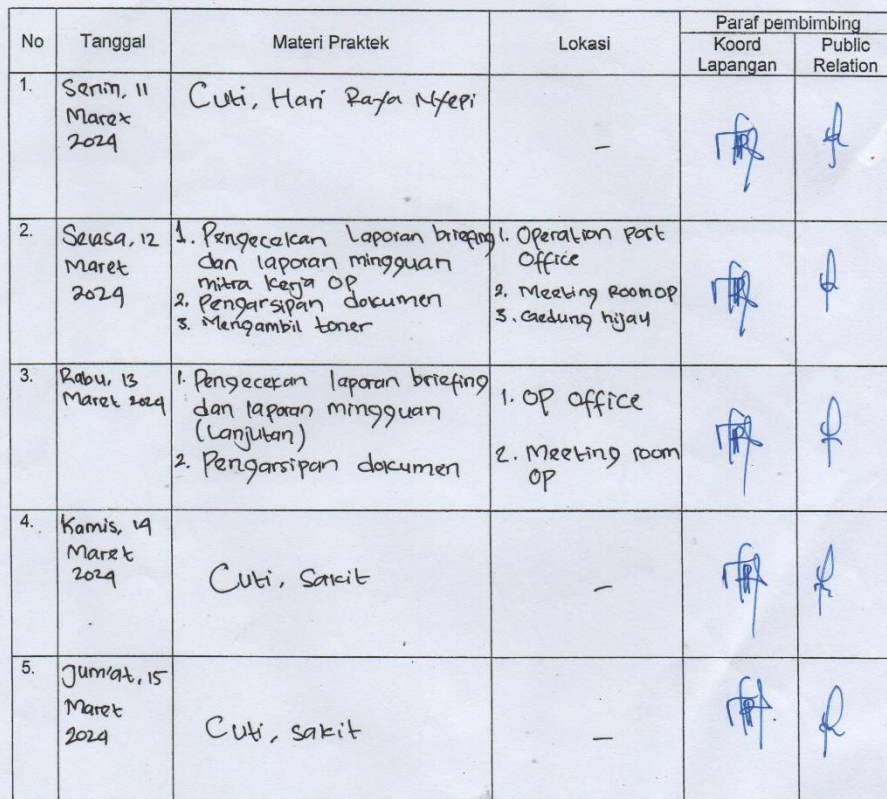 No Tanggal Materi Praktek Lokasi Paraf pembimbing
Koord Lapangan Public Relation
1. Senin, 11
Maret
2024
Cuti, Hari Raya Nyepi
-
2. Selasa, 12
Maret
2024
1. Pengecekan Laporan briefing
dan laporan mingguan
mitra kerja OP
2. Pengarsipan dokumen
3. Mengambil toner
1. Operation port
Office
2. Meeting Room OP
3. Gedung hijau
3. Rabu, 13
Maret 2024
1. Pengecekan laporan briefing
dan laporan mingguan
(Lanjutan)
2. Pengarsipan dokumen
1. OP Office
2. Meeting room
OP
4. Kamis, 14
Maret
2024
Cuti, Sakit
-
5. Jum'at, 15
Maret
2024
Cuti, sakit
-